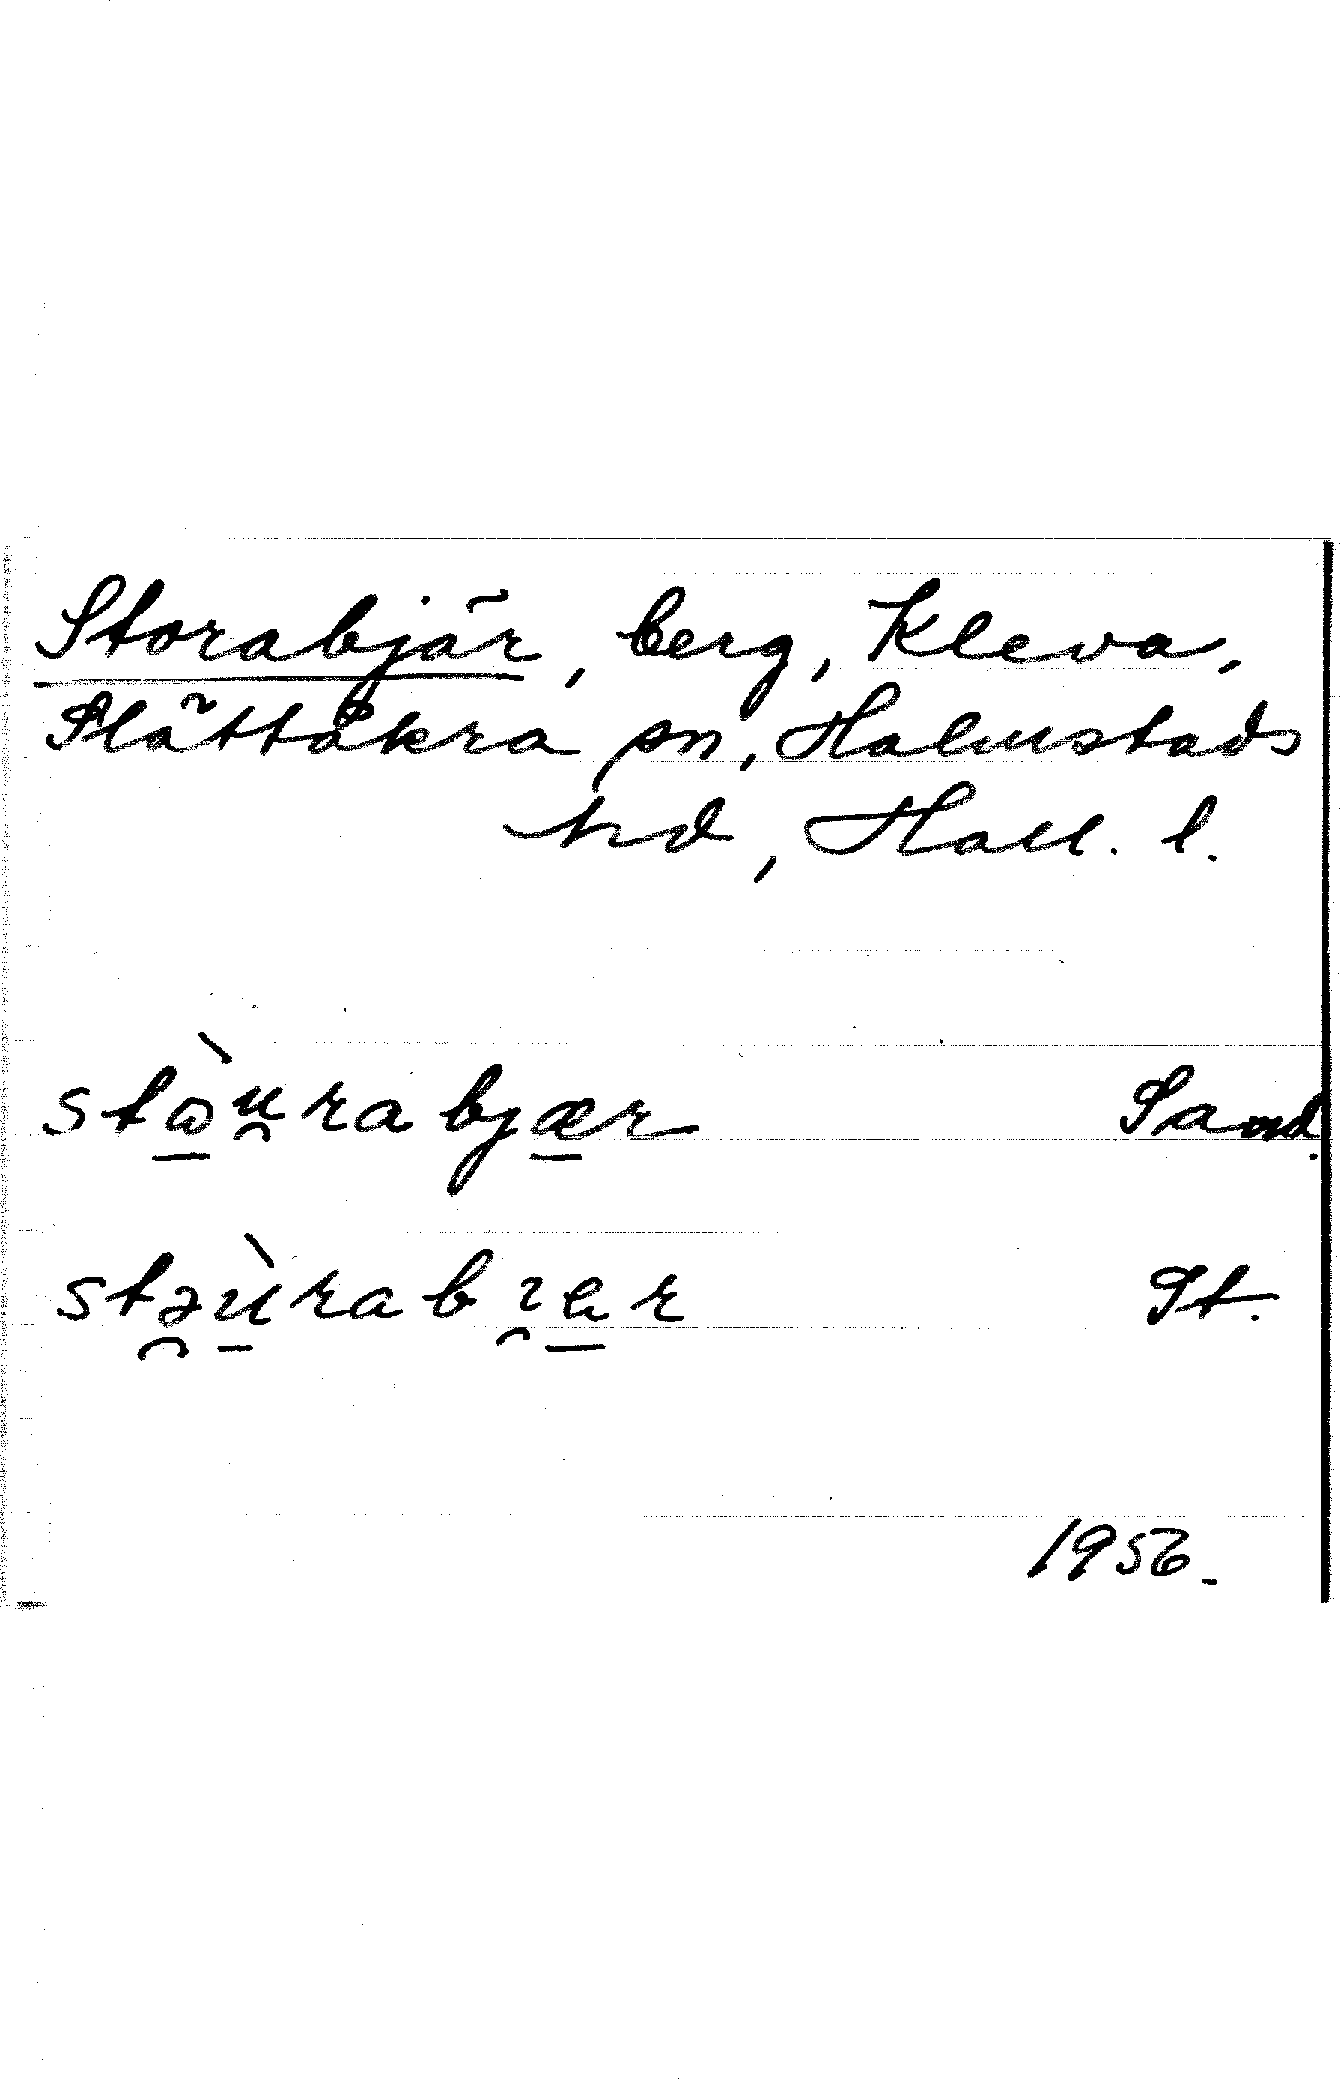 Storabjär, berg, Kleva,
Slättåkra sn, Halmstads
hd, Hall. l.
stɷ̀u̯rabjær Sand.
stə̯ùrabɿ̯er St.
1956.